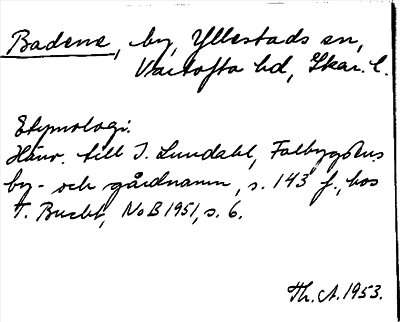 Badene, by, Yllestads sn,
Vartofta hd, Skar. l.
Etymologi.
Hänv. till I. Lundahl, Falbygdens
by- och gårdnamn, s. 143 f., hos
T. Bucht, NoB 1951, s. 6.
Th. A. 1953.